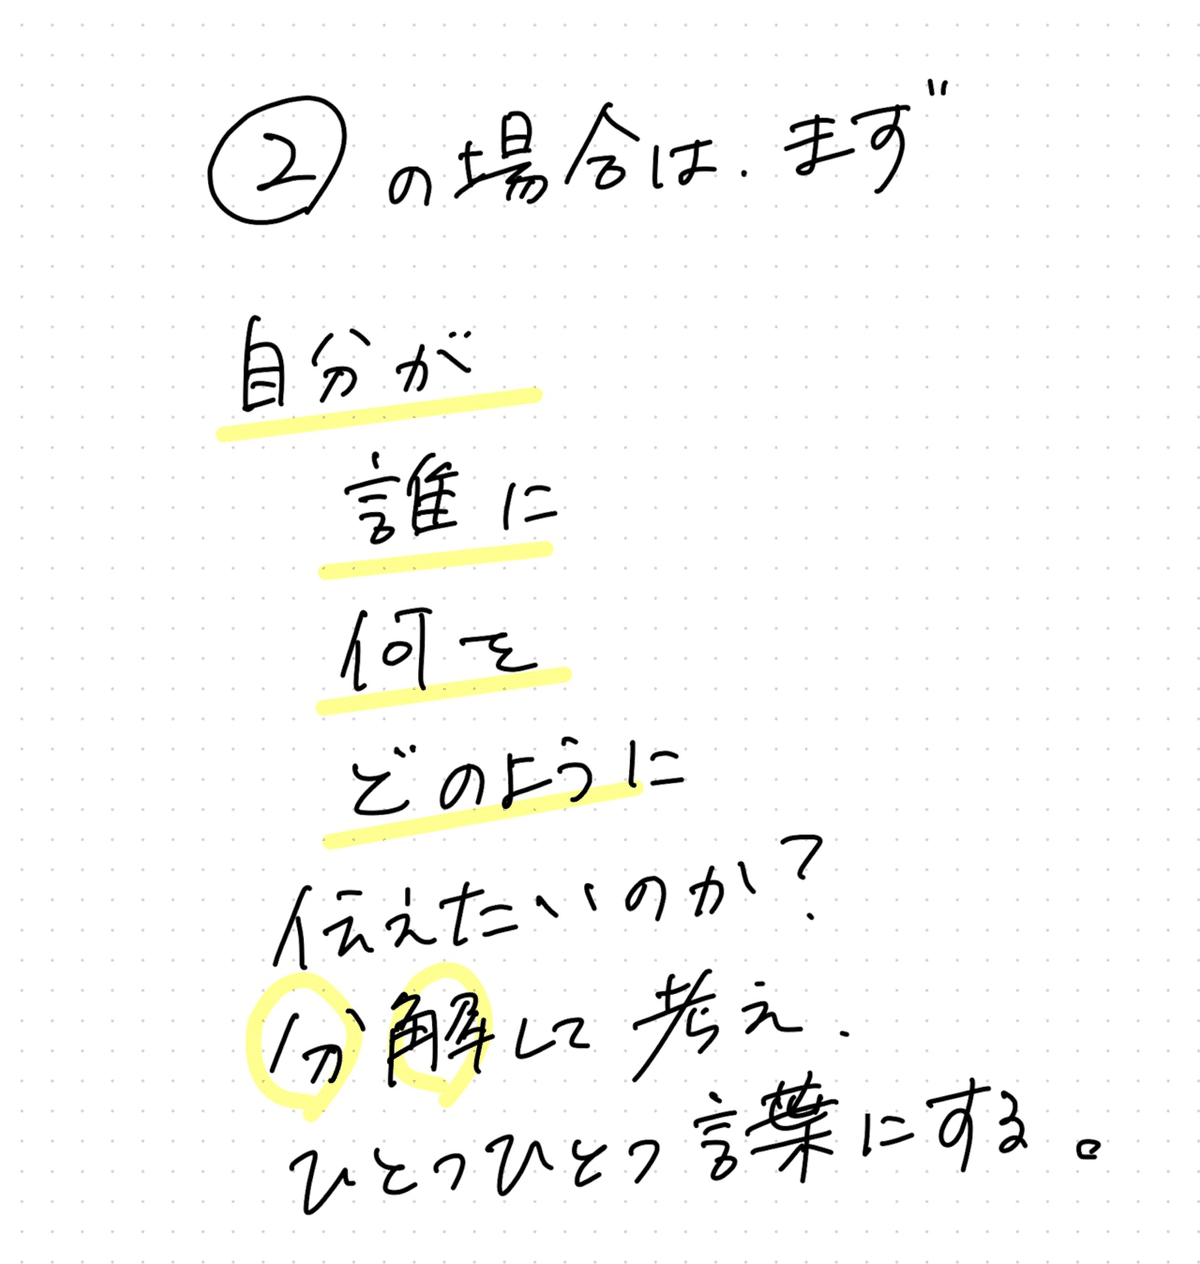 ②の場合は、まず
自分が
誰に
何を
どのように
伝えたいのか?
分解して考え、
ひとつひとつ言葉にする。